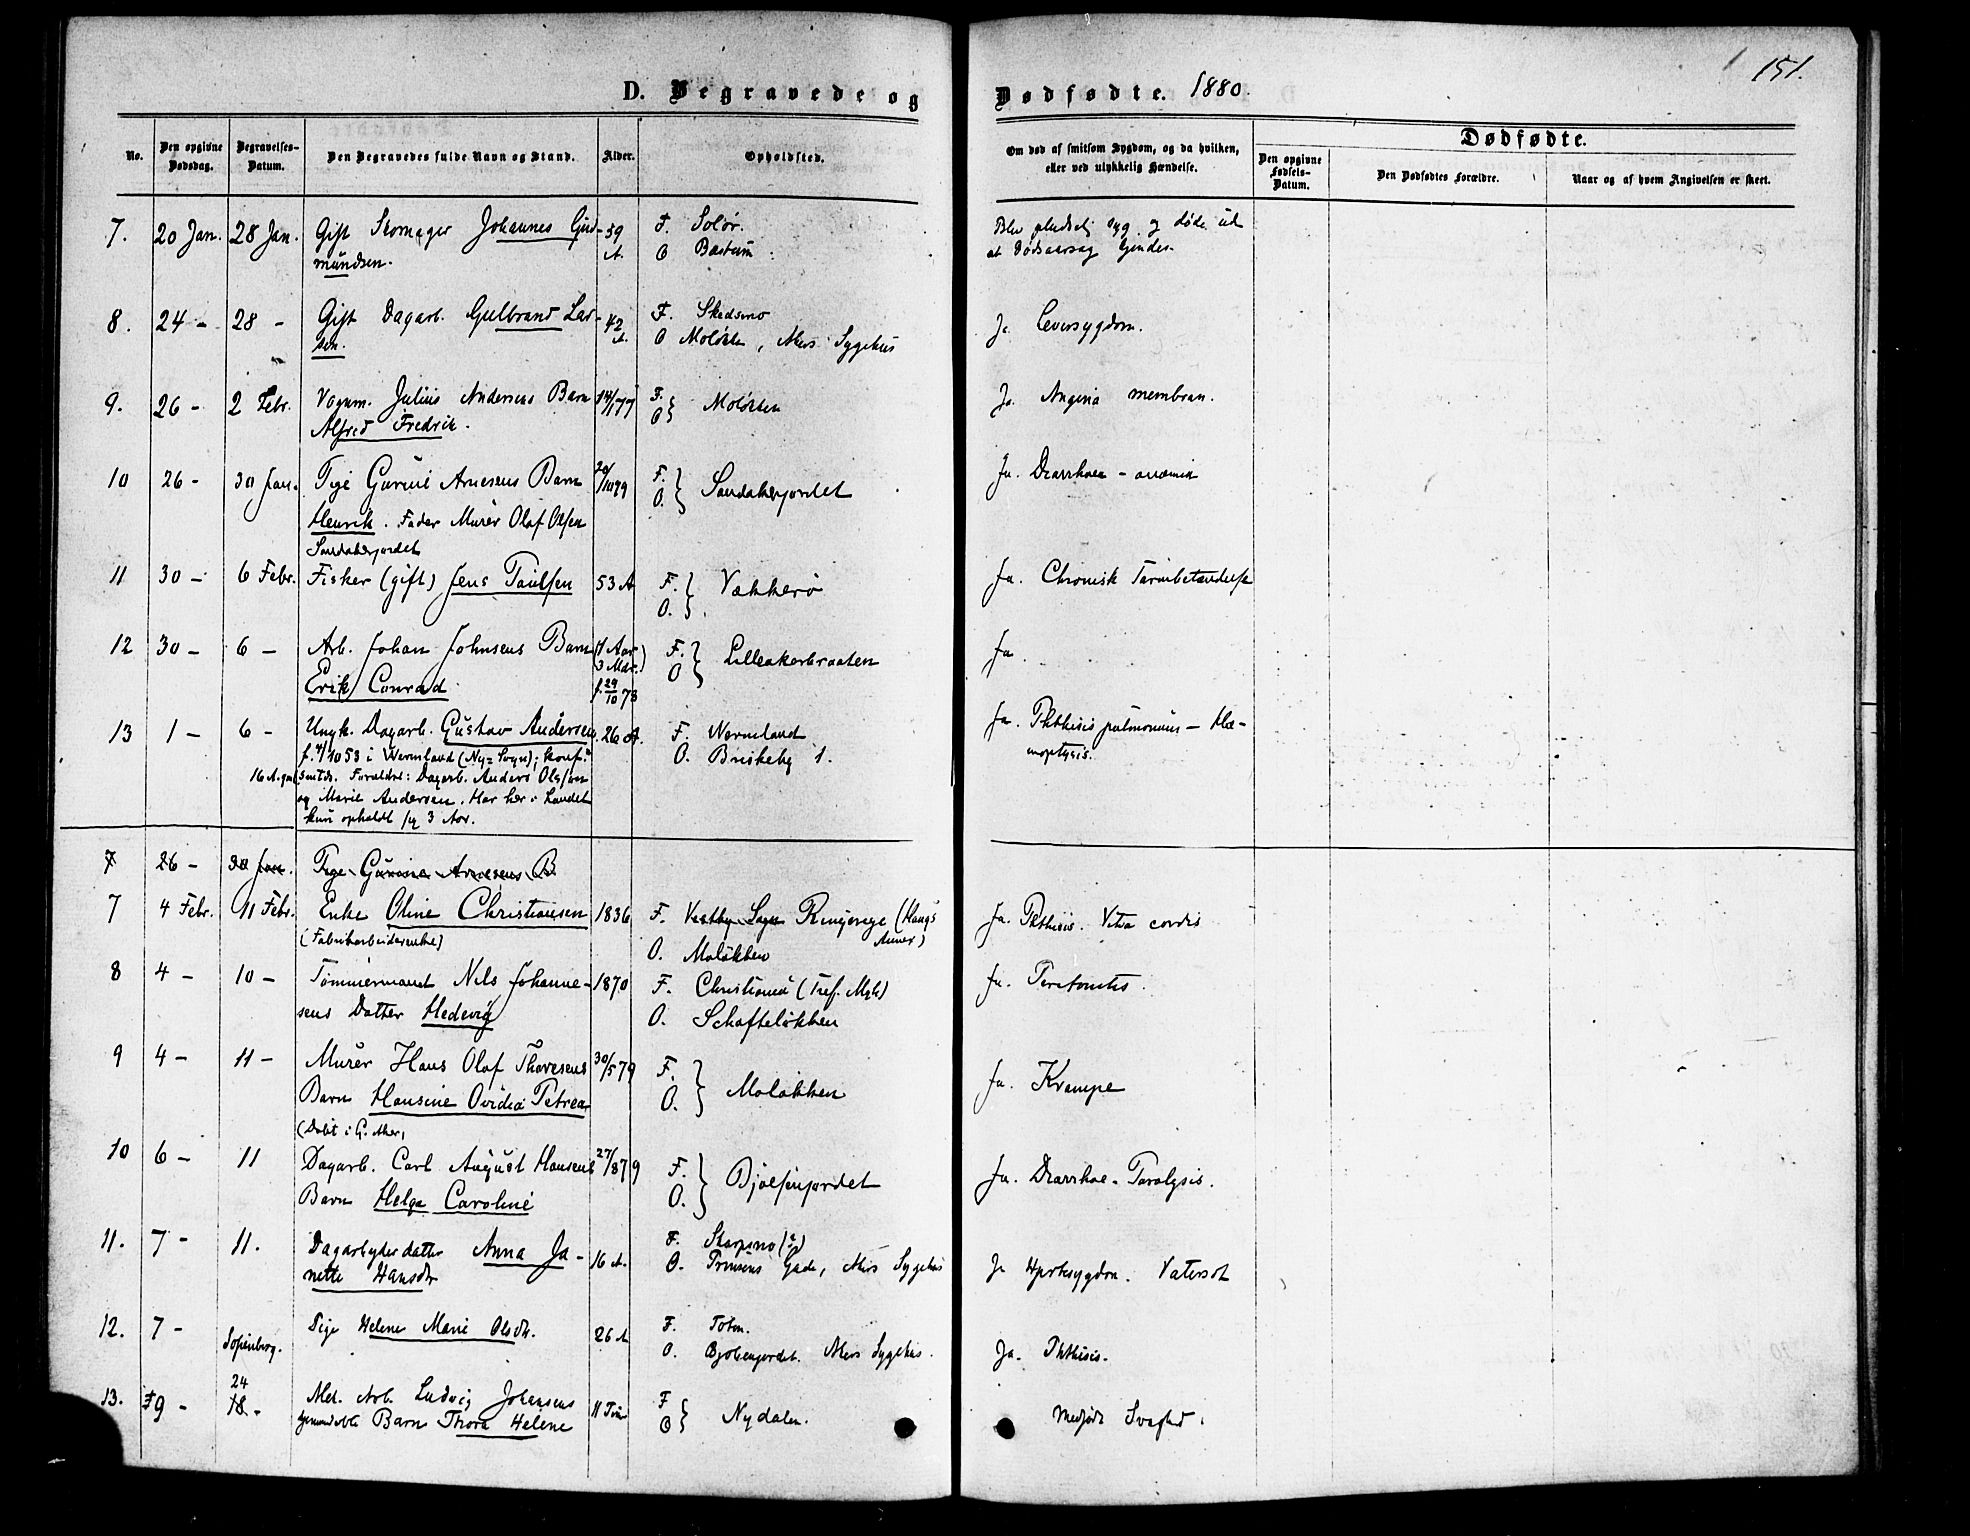 151.
D. Begravede og Dødfødte. 1880.
No.
Den opgivne Dødsdag.
Begravelses-Datum.
Den Begravedes fulde Navn og Stand.
Alder.
Opholdsted.
Om død af smitsom Sygdom, og da hvilken, eller ved ulykkelig Hændelse.
Dødfødte.
Den opgivne Fødsels-Datum.
Den Dødfødtes Forældre.
Naar og af hvem Angivelsen er skeet.
7. 20 Jan. 28 Jan. Gift Skomager Johannes Gud- 59 F. Solør. Blev pludselig syg og døde
mundsen. A. O Bæstum. at Dødsaarsag
8. 24 - 28 - Gift Dagarb. Gulbrand Lar- 42 F. Skedsmo Ja Leversygdom.
sen. A. O Moløkken, Akers Sygehus
9. 26 - 2 Febr. Vognm. Julius Andersens Barn 14/1 77 F. O } Moløkken Ja. Angina membran.
Alfred Fredrik.
10 26 - 30 Jan. Pige Gurine Arnesens Barn 20/10 79 F. O. } Sandakerjordet Ja. Diarrhoea - anæmia
Henrik. Fader Murer Olaf Olsen
Sandakerjordet
11 30 - 6 Febr. Fisker (gift) Jens Paulsen 53 A F. O. } Vækkerø Ja. Chronisk Tarmbetændelse
12 30 - 6 - Arb. Johan Johnsens Barn Aar F. O } Lilleakerbraaten Ja.
3 Mdr.)
Erik Conrad f. 29/10 73
13 1 - 6 - Ungk. Dagarb. Gustav Andersen. 26 A. F. Wermland Ja. Phthisis pulmonum - Hæ-
f. 4/10 53 i Wermland (Ny = Sogn); konf. O. Briskeby 1. moptysis.
16 A. gml Smstds. Forældre: Dagarb. Anders Olsson
og Marie Andersen. Har her i Landet
kun opholdt sig 3 Aar.
7 26 - 30 Jan. Pige Gurine Arnesens B
7 4 Febr. 11 Febr. Enke Oline Christiansen 1836 F. Vestby Sogn Ringerige (Haugs Ja. Phthisis. Vitia cordis
(Fabrikarbeiderenke) Annex)
O. Moløkken
8 4 - 10 - Tømmermand Nils Johanne- 1870 F. Christiania (Tref. Mgh) Ja. Peritonitis.
sens Datter Hedevig O. Schafteløkken
9 4 - 11 - Murer Hans Olaf Thoresens 30/5 79 F. O. } Moløkken Ja. Krampe
Barn Hansine Ovidia Petrea
(Døbt i G. Aker)
10 6 - 11 Dagarb. Carl August Hansens 27/8 79 F. O. } Bjølsenjordet Ja. Diarrhoe - Paralysis.
Barn Helga Caroline
11. 7 - 11. Dagarbeiderdatter Anna Ja- 16 A. F. Skarpsno (?) Ja Hjertesygdom. Vatersot
nette Hansdr O. Prinsens Gade, Akers Sygehus
12. 7 - Pige Helene Marie Olsdr. 26 A F. Toten. Ja. Phthisis.
Sofienberg. O. Bjølsenjordet. Akers Sygehus.
24
13. 9 - 18 - Mek. Arb. Ludvig Johansens 11 Timer F O } Nydalen. Medfødt Svaghed.
hjemmedøbte Barn Thora Helene